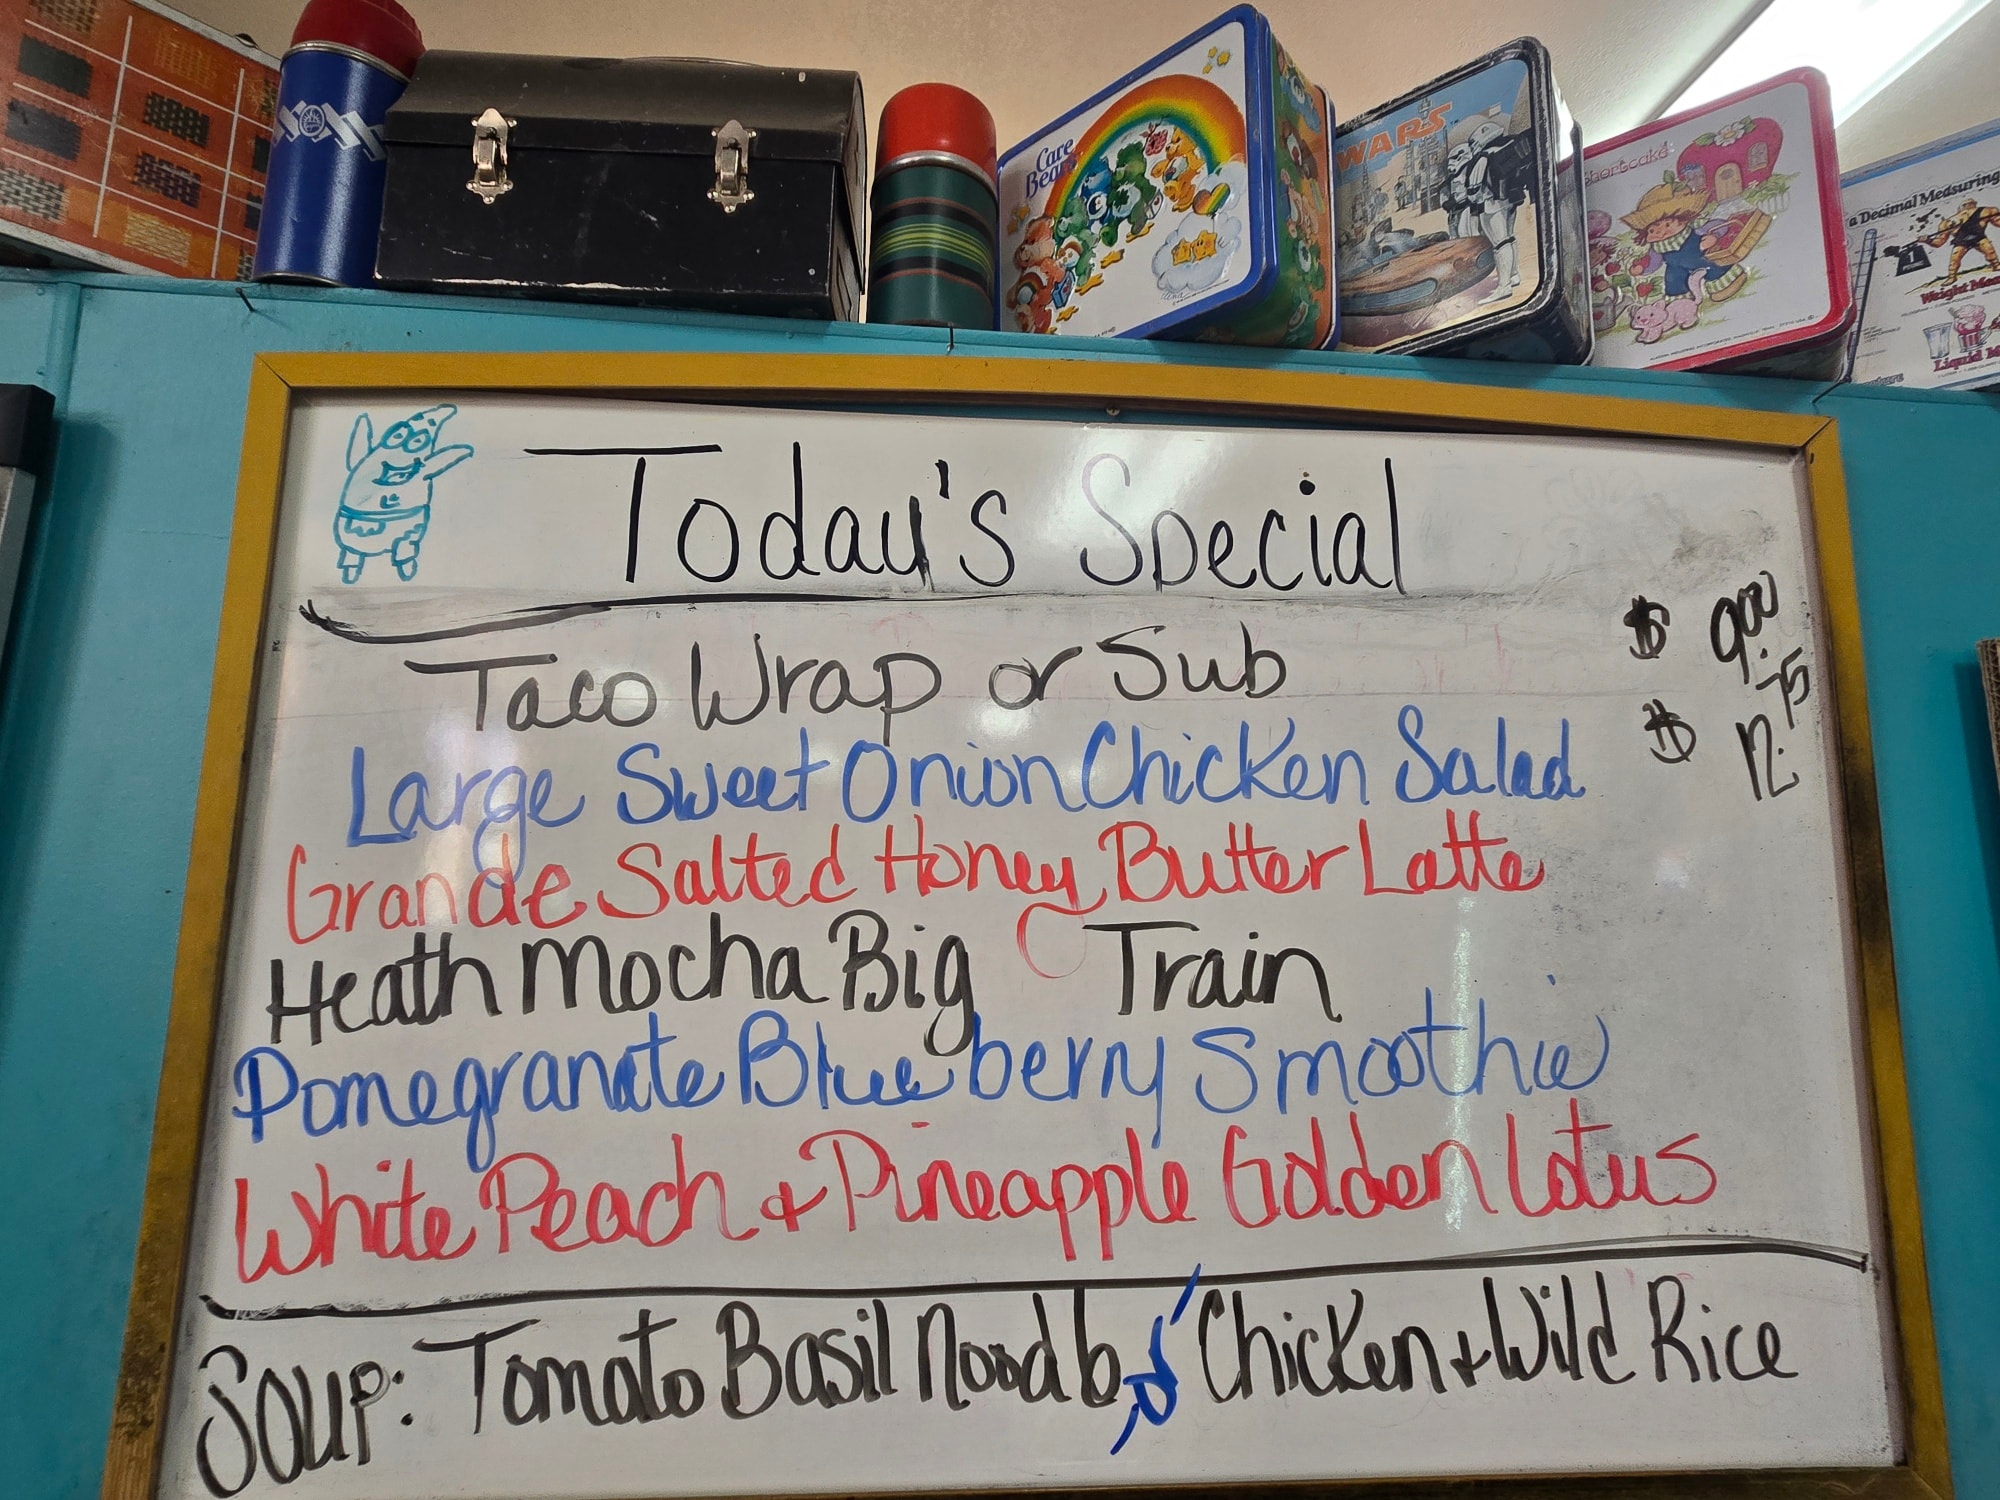 Care
Bears
WARS
Shortcake
a Decimal Measuring
Weight
Liquid
Today's Special
Taco Wrap or Sub $ 9.00
Large Sweet Onion Chicken Salad $ 12.75
Grande Salted Honey Butter Latte
Heath Mocha Big Train
Pomegranate Blueberry Smoothie
White Peach + Pineapple Golden Lotus
Soup: Tomato Basil Nood Chicken + Wild Rice